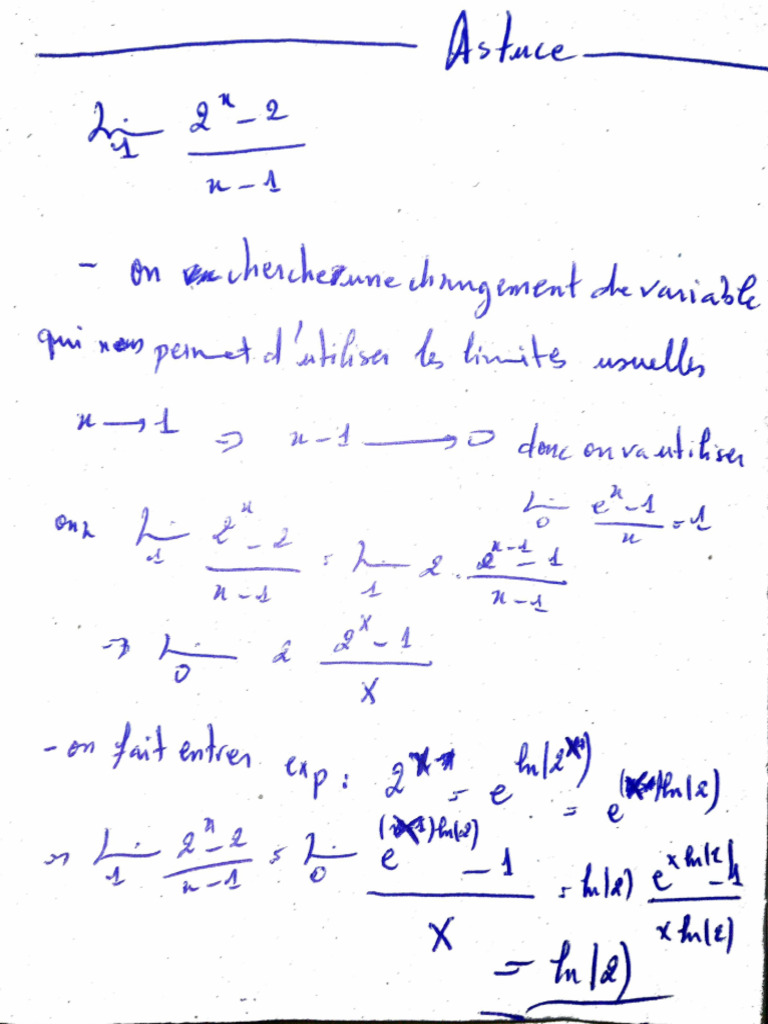 Astuce
Lim_1 (2^x - 2)/(x - 1)
- on cherche une changement de variable
qui nous permet d'utiliser les limites usuelles
x → 1 ⇒ x-1 → 0 donc on va utiliser
Lim_0 (e^x - 1)/x = 1
on a Lim_1 (2^x - 2)/(x - 1) = Lim_1 2 . (2^(x-1) - 1)/(x - 1)
⇒ Lim_0 2 (2^X - 1)/X
- on fait entrer exp : 2^X = e^(ln(2^X)) = e^(X ln(2))
⇒ Lim_1 (2^x - 2)/(x - 1) = Lim_0 (e^(X ln(2)) - 1)/X = ln(2) (e^(x ln(2)) - 1)/(x ln(2))
= ln(2)